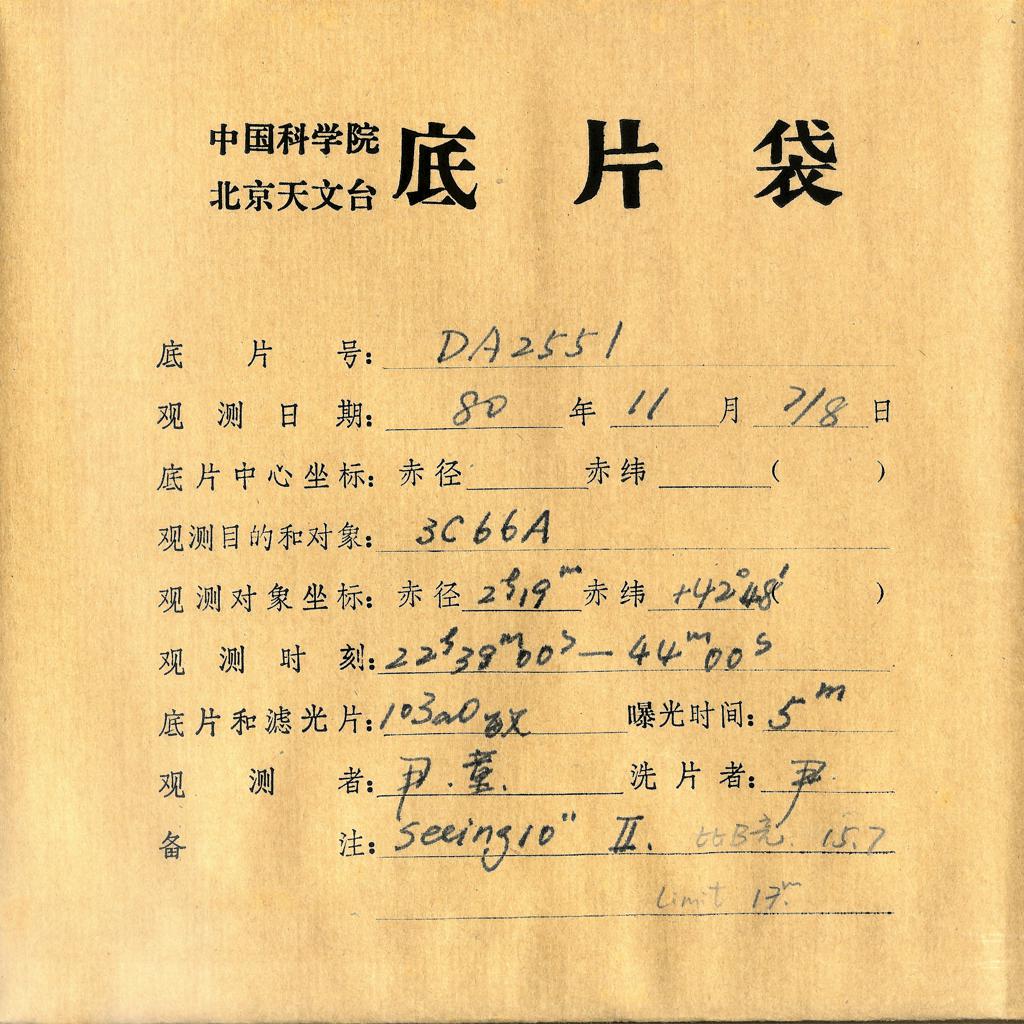 中国科学院
北京天文台
底片袋
底片号: DA2551
观测日期: 80 年 11 月 7/8 日
底片中心坐标: 赤径 赤纬 ( )
观测目的和对象: 3C66A
观测对象坐标: 赤径 2h19m 赤纬 +42°48′ ( )
观测时刻: 22h39m00s — 44m00s
底片和滤光片: 103aO 曝光时间: 5m
观测者: 尹.董. 洗片者: 尹.
备注: seeing10″ II. 比B亮. 15.7
Limit 17m.